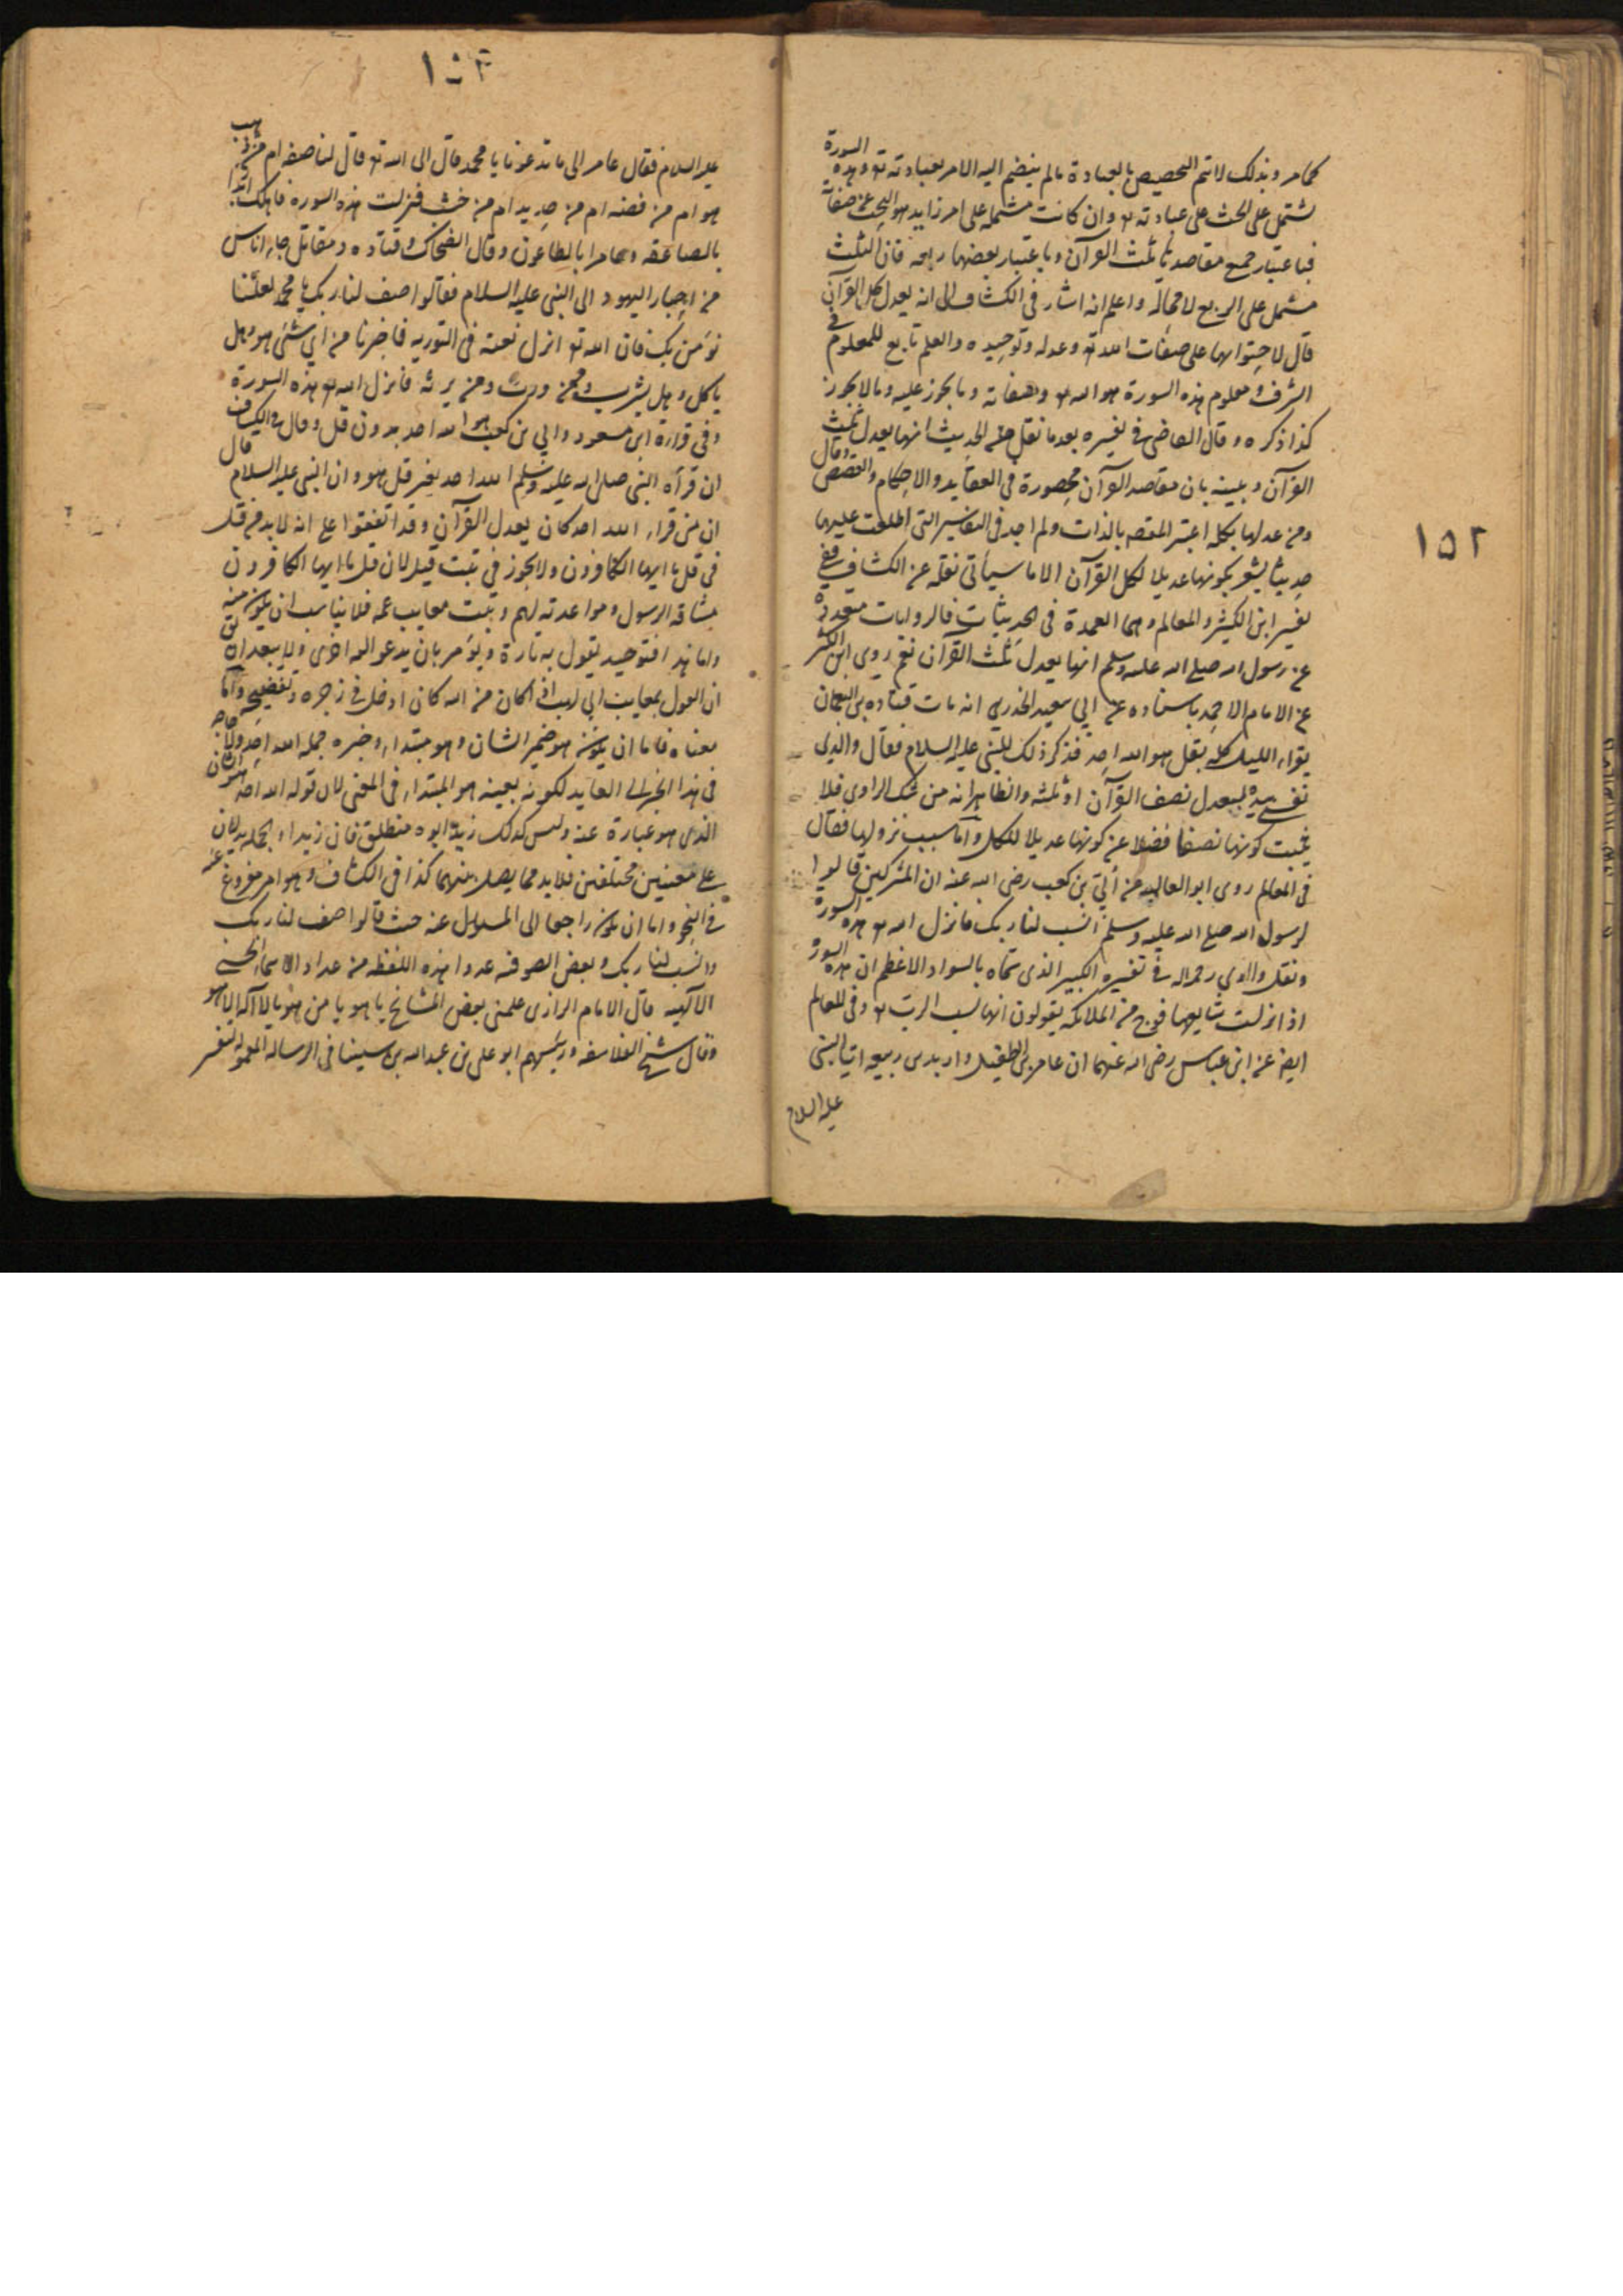 ١٥٢
كما مر وبذلك لا يتم التخصيص بالعبادة ما لم ينضم اليه الامر بعبادته تع وهذه السورة
تشتمل على الحث على عبادته تع وان كانت مشتملة على امر زايد هو البحث عن صفاته
فباعتبار جميع مقاصدها ثلث القرآن وباعتبار بعضها ربعه فان الثلث
مشتمل على الربع لا محالة واعلم انه اشار فى الكشاف الى انه يعدل كل القرآن
قال لاحتوائها على صفات الله تع وعدله وتوحيده والعلم تابع للمعلوم فى
الشرف ومعلوم هذه السورة هو الله تع وصفاته وما يجوز عليه وما لا يجوز
كذا ذكره وقال القاضى فى تفسيره بعد ما نقل الحديث انها يعدل ثلث
القرآن وبينه بان مقاصد القرآن محصورة فى العقايد والاحكام والقصص وقال
ومن عدلها بكله اعتبر المقصد بالذات ولم اجد فى التفاسير التى اطلعت عليها
حديثا يشعر بكونها عديلا لكل القرآن الا ما سيأتى نقله عن الكشاف ففى
تفسير ابن الكثير والمعالم وهما العمدة فى الحديثيات فالروايات متعددة
عن رسول الله صلى الله عليه وسلم انها يعدل ثلث القرآن نعم روى ابن الكثير
عن الامام الاحمد باسناده عن ابي سعيد الخدري انه بات قتاده بن النعمان
يقواء الليل كله بقل هو الله احد فذكر ذلك للنبى عليه السلام فقال والذى
نفسى بيده ليعدل نصف القرآن او ثلثه والظاهر انه من شك الراوى فلا
يثبت كونها نصفا فضلا عن كونها عديلا للكل وأما سبب نزولها فقال
فى المعالم روى ابو العاليه عن أبيّ بن كعب رضى الله عنه ان المشركين قالوا
لرسول الله صلع الله عليه وسلم انسب لنا ربك فانزل الله تع هذه السورة
ونقل رحمه الله فى تفسيره الكبير الذى سماه بالسواد الاعظم ان هذه السورة
اذا نزلت شايعها فوج من الملائكه يقولون انها نسب الرب تع وفى المعالم
ايضا عن ابن عباس رضى الله عنهما ان عامر بن الطفيل واربد بن ربيعه اتيا النبى
عليه السلام
١٥٣
عليه السلام فقال عامر الى ما تدعونا يا محمد قال الى الله تع قال لنا صفه ام من ذهب
هو ام من فضه ام من حديد ام من خشب فنزلت هذه السورة فاهلك اربد
بالصاعقه وعامرا بالطاعون وقال الضحاك وقتاده ومقاتل جاء اناس
من احبار اليهود الى النبى عليه السلام فقالوا صف لنا ربك يا محمد لعلنا
نؤمن بك فان الله تع انزل نعته فى التوريه فاخبرنا من اي شئ هو وهل
ياكل وهل يشرب وممن ورث ومن يرثه فانزل الله تع هذه السورة
وفى قراءة ابن مسعود وابي بن كعب هو الله احد بدون قل وقال فى الكشاف
ان قرأه النبى صلى الله عليه وسلم الله احد بغير قل هو وان النبى عليه السلام قال
ان من قراء الله احد كان يعدل القرآن وقد اتفقوا على انه لا بد من قل
فى قل يا ايها الكافرون ولا يجوز فى تبت قيل لان قل يا ايها الكافرون
مشاقه الرسول وموادعته لهم وتبت معايب عمه فلا يناسب ان يكون منه
واما هذا فتوحيد يقول به تارة ويؤمر بان يدعو اليه اخرى ولا يبعد ان يق
ان القول بمعايب ابى لهب اذا كان من الله كان ادخل فى زجره وتفضيحه وأما
معناه فاما ان يكون هو ضمير الشان وهو مبتداء وخبره جمله الله احد ولا حاجه
فى هذا الخبر الى العايد لكونه بعينه هو المبتداء فى المعنى لان قوله الله احد هو الشان
الذى هو عبارة عنه وليس كذلك زيد ابوه منطلق فان زيدا والجمله يدلان
على معنيين مختلفين فلا بد مما يصل بينهما كذا فى الكشاف وهو امر مفروغ عنه
فى النحو واما ان يكون راجعا الى المسئول عنه حيث قالوا صف لنا ربك
وانسب لنا ربك وبعض الصوفيه عدوا هذه اللفظه من عداد الاسماء الحسنى
الآلهيه قال الامام الرازى علمنى بعض المشايخ يا هو يا من هو يا لا آله الا هو
وقال شيخ الفلاسفه ورئيسهم ابو على بن عبد الله بن سينا فى الرساله المعموله لتفسير